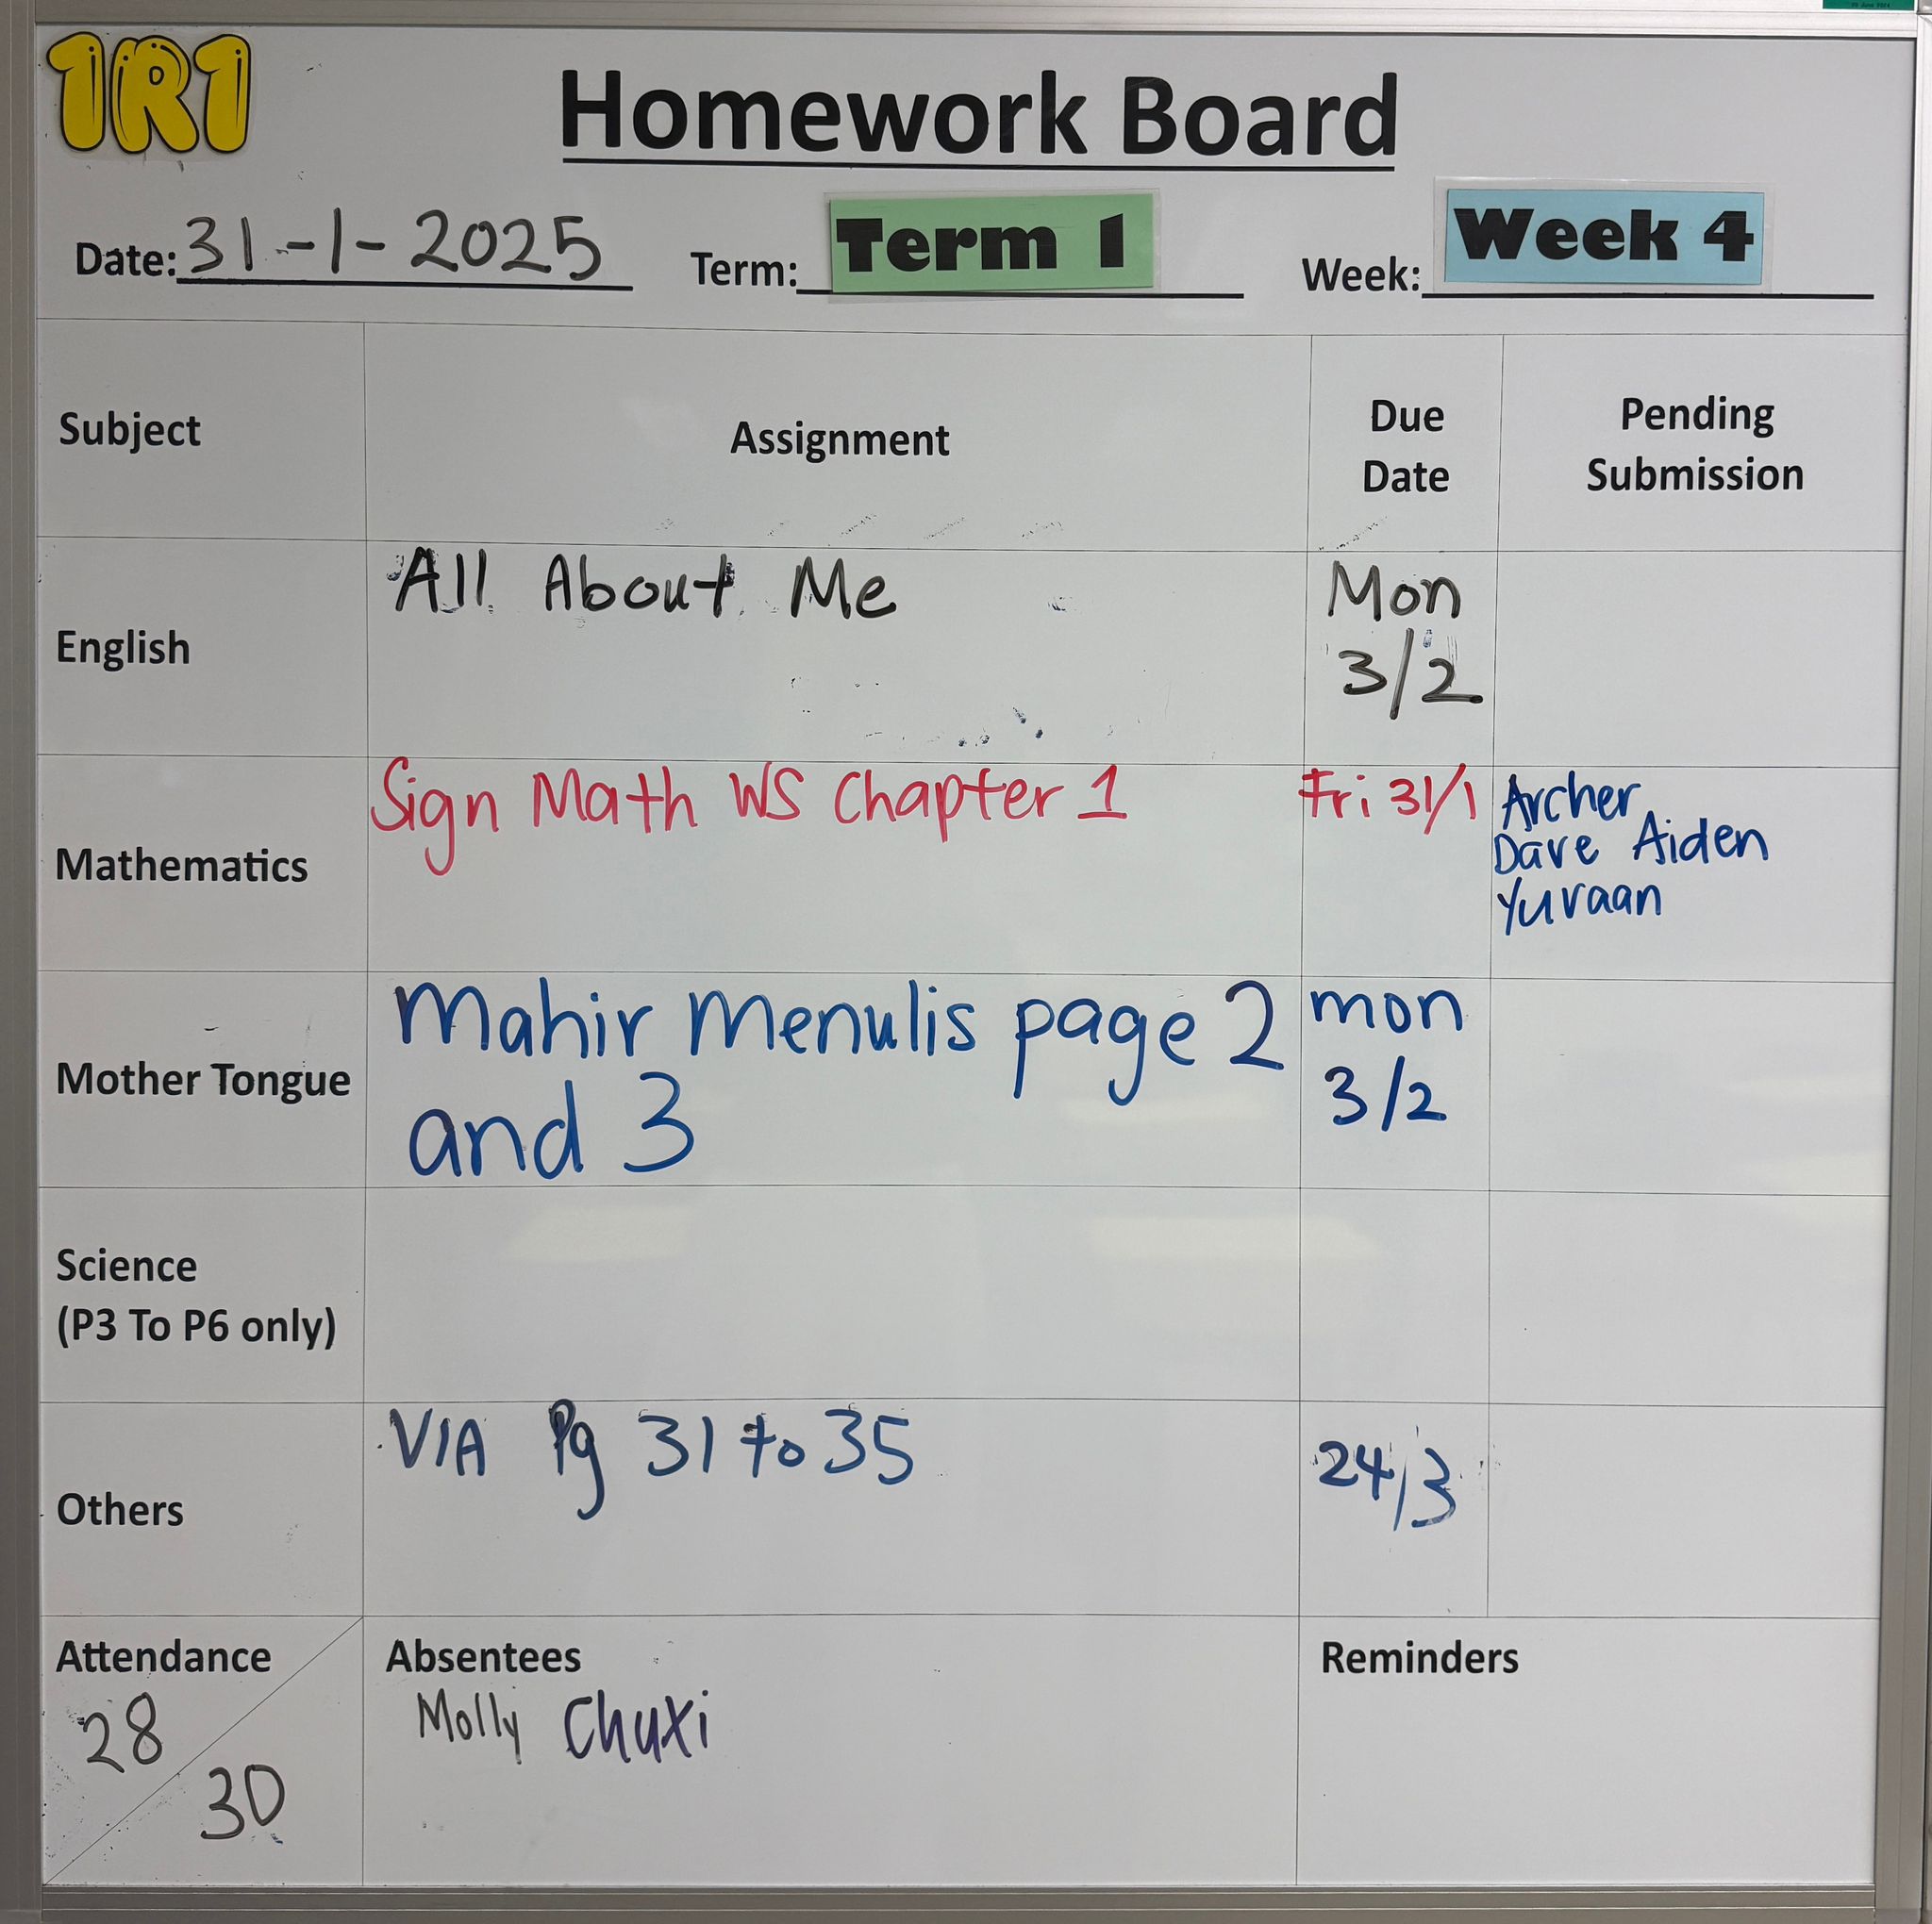 1R1
Homework Board
Date: 31-1-2025 Term: Term 1 Week: Week 4
Subject
Assignment
Due
Date
Pending
Submission
English
All About Me
Mon
3/2
Mathematics
Sign Math WS Chapter 1
Fri 31/1
Archer
Dave Aiden
Yuvaan
Mother Tongue
Mahir Menulis page 2
and 3
mon
3/2
Science
(P3 To P6 only)
Others
VIA Pg 31 to 35
24/3
Attendance
28
30
Absentees
Molly Chuxi
Reminders